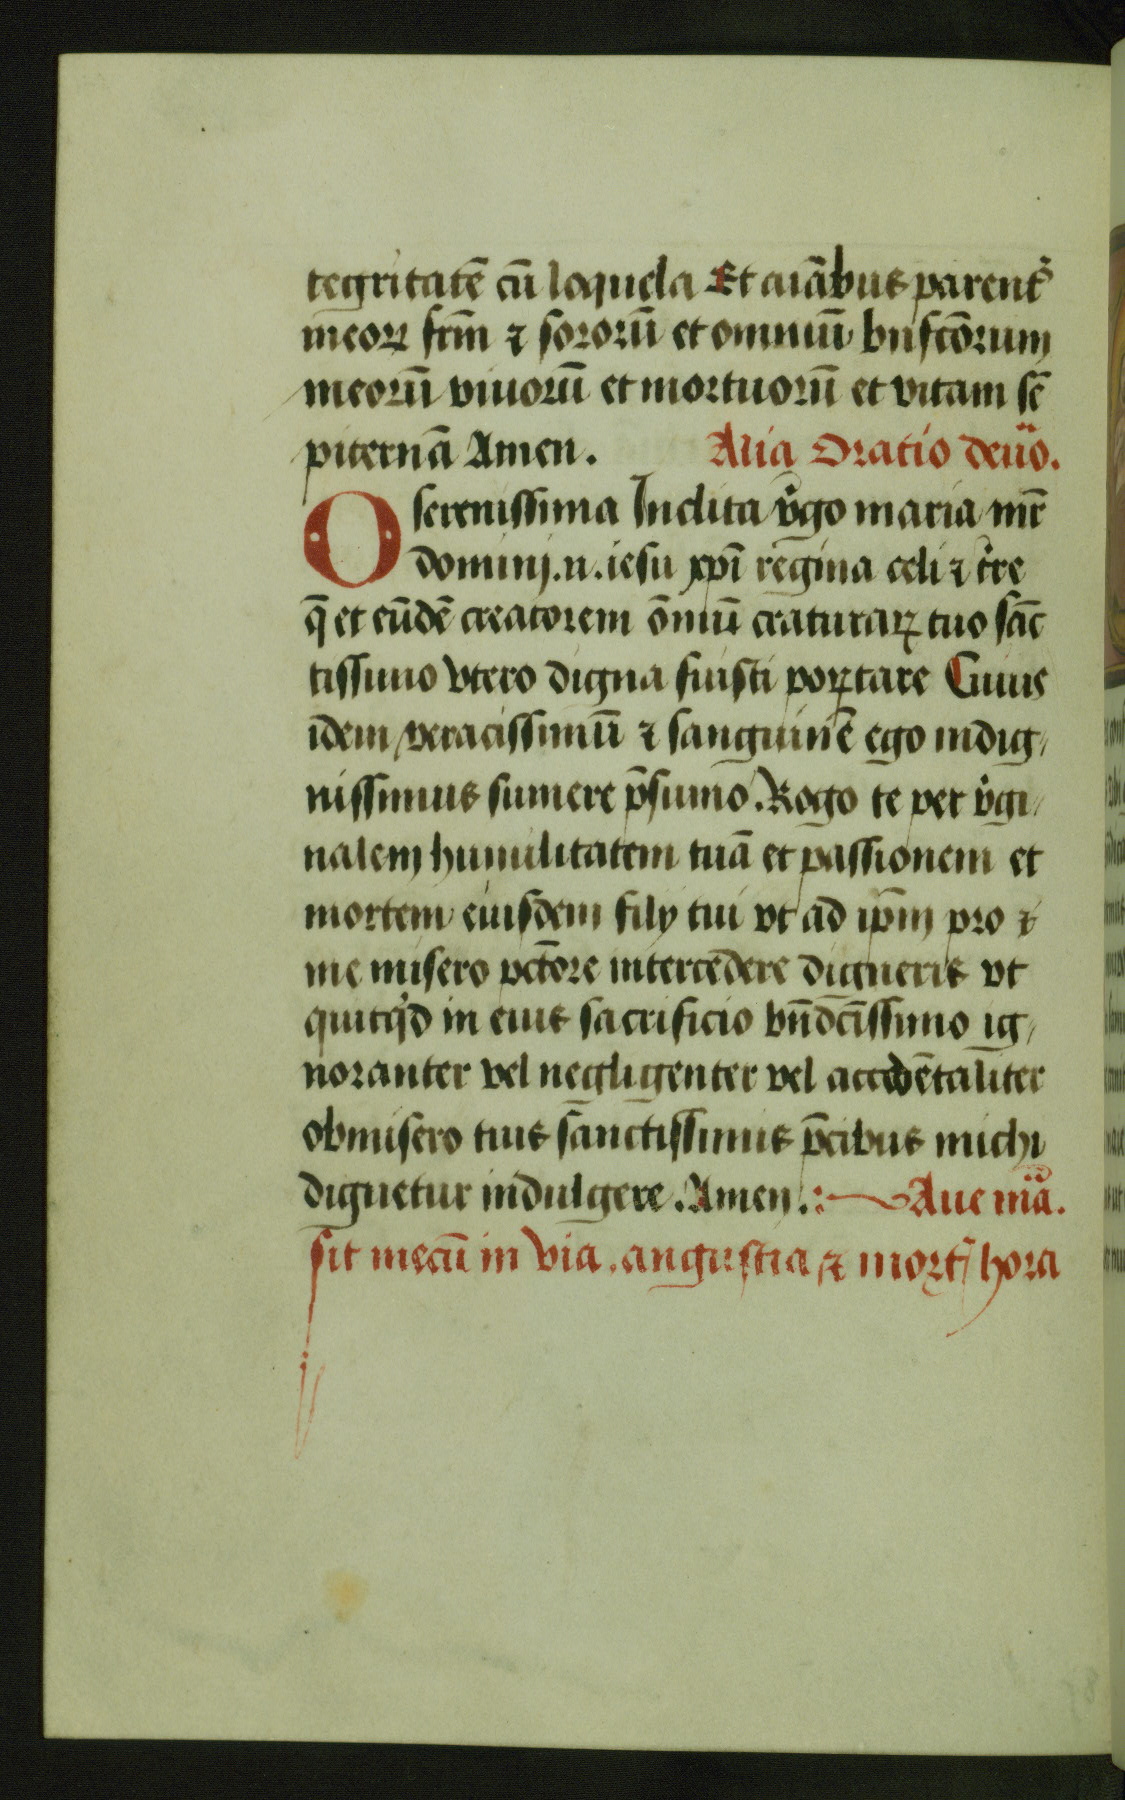 tegritatē cū loquela Et aīabus parent᷒
meoꝝ frm̄ ⁊ sororū et omniū bn̄fcōrum
meorū viuorū et mortuorū et vitam sē
piternā Amen. Alia Oratio deuo.
O serenissima Inclita v̓go maria mr̄
dominj .n. iesu xp̄i regina celi ⁊ t̓re
q̄ et eūdē creatorem om̄iū craturaꝝ tuo sāc
tissimo vtero digna fuisti portare Cuius
idem veracissimū ⁊ sanguinē ego indig
nissimus sumere p̄sumo. Rogo te per v̓gi
nalem humilitatem tuā et passionem et
mortem eiusdem filij tui vt ad ip̄m pro ⁊
me misero pctōre intercedere digneris vt
quitq̇d in eius sacrificio bn̄dcīssimo ig
noranter vel negligenter vel accedētaliter
obmisero tuis sanctissimis p̄cibus michi
dignetur indulgere. Amen. Aue mīa.
sit mecū in via. angustia ⁊ mort᷒ hora